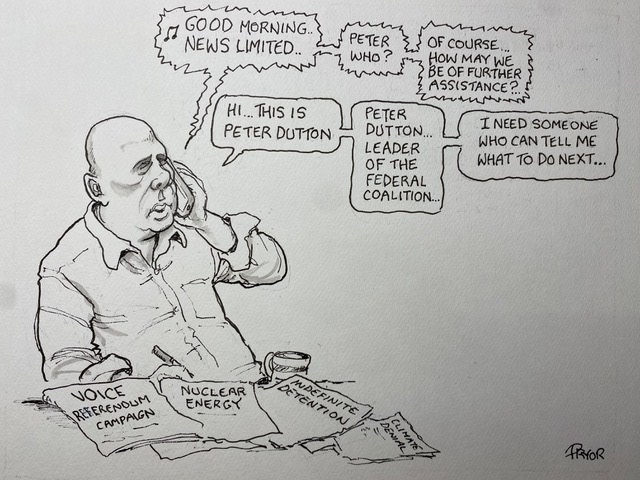 GOOD MORNING..
NEWS LIMITED..
HI...THIS IS
PETER DUTTON
PETER
WHO?
PETER
DUTTON...
LEADER
OF THE
FEDERAL
COALITION...
OF COURSE...
HOW MAY WE
BE OF FURTHER
ASSISTANCE?..
I NEED SOMEONE
WHO CAN TELL ME
WHAT TO DO NEXT...
VOICE
REFERENDUM
CAMPAIGN
NUCLEAR
ENERGY
INDEFINITE
DETENTION
CLIMATE
DENIAL
PRYOR